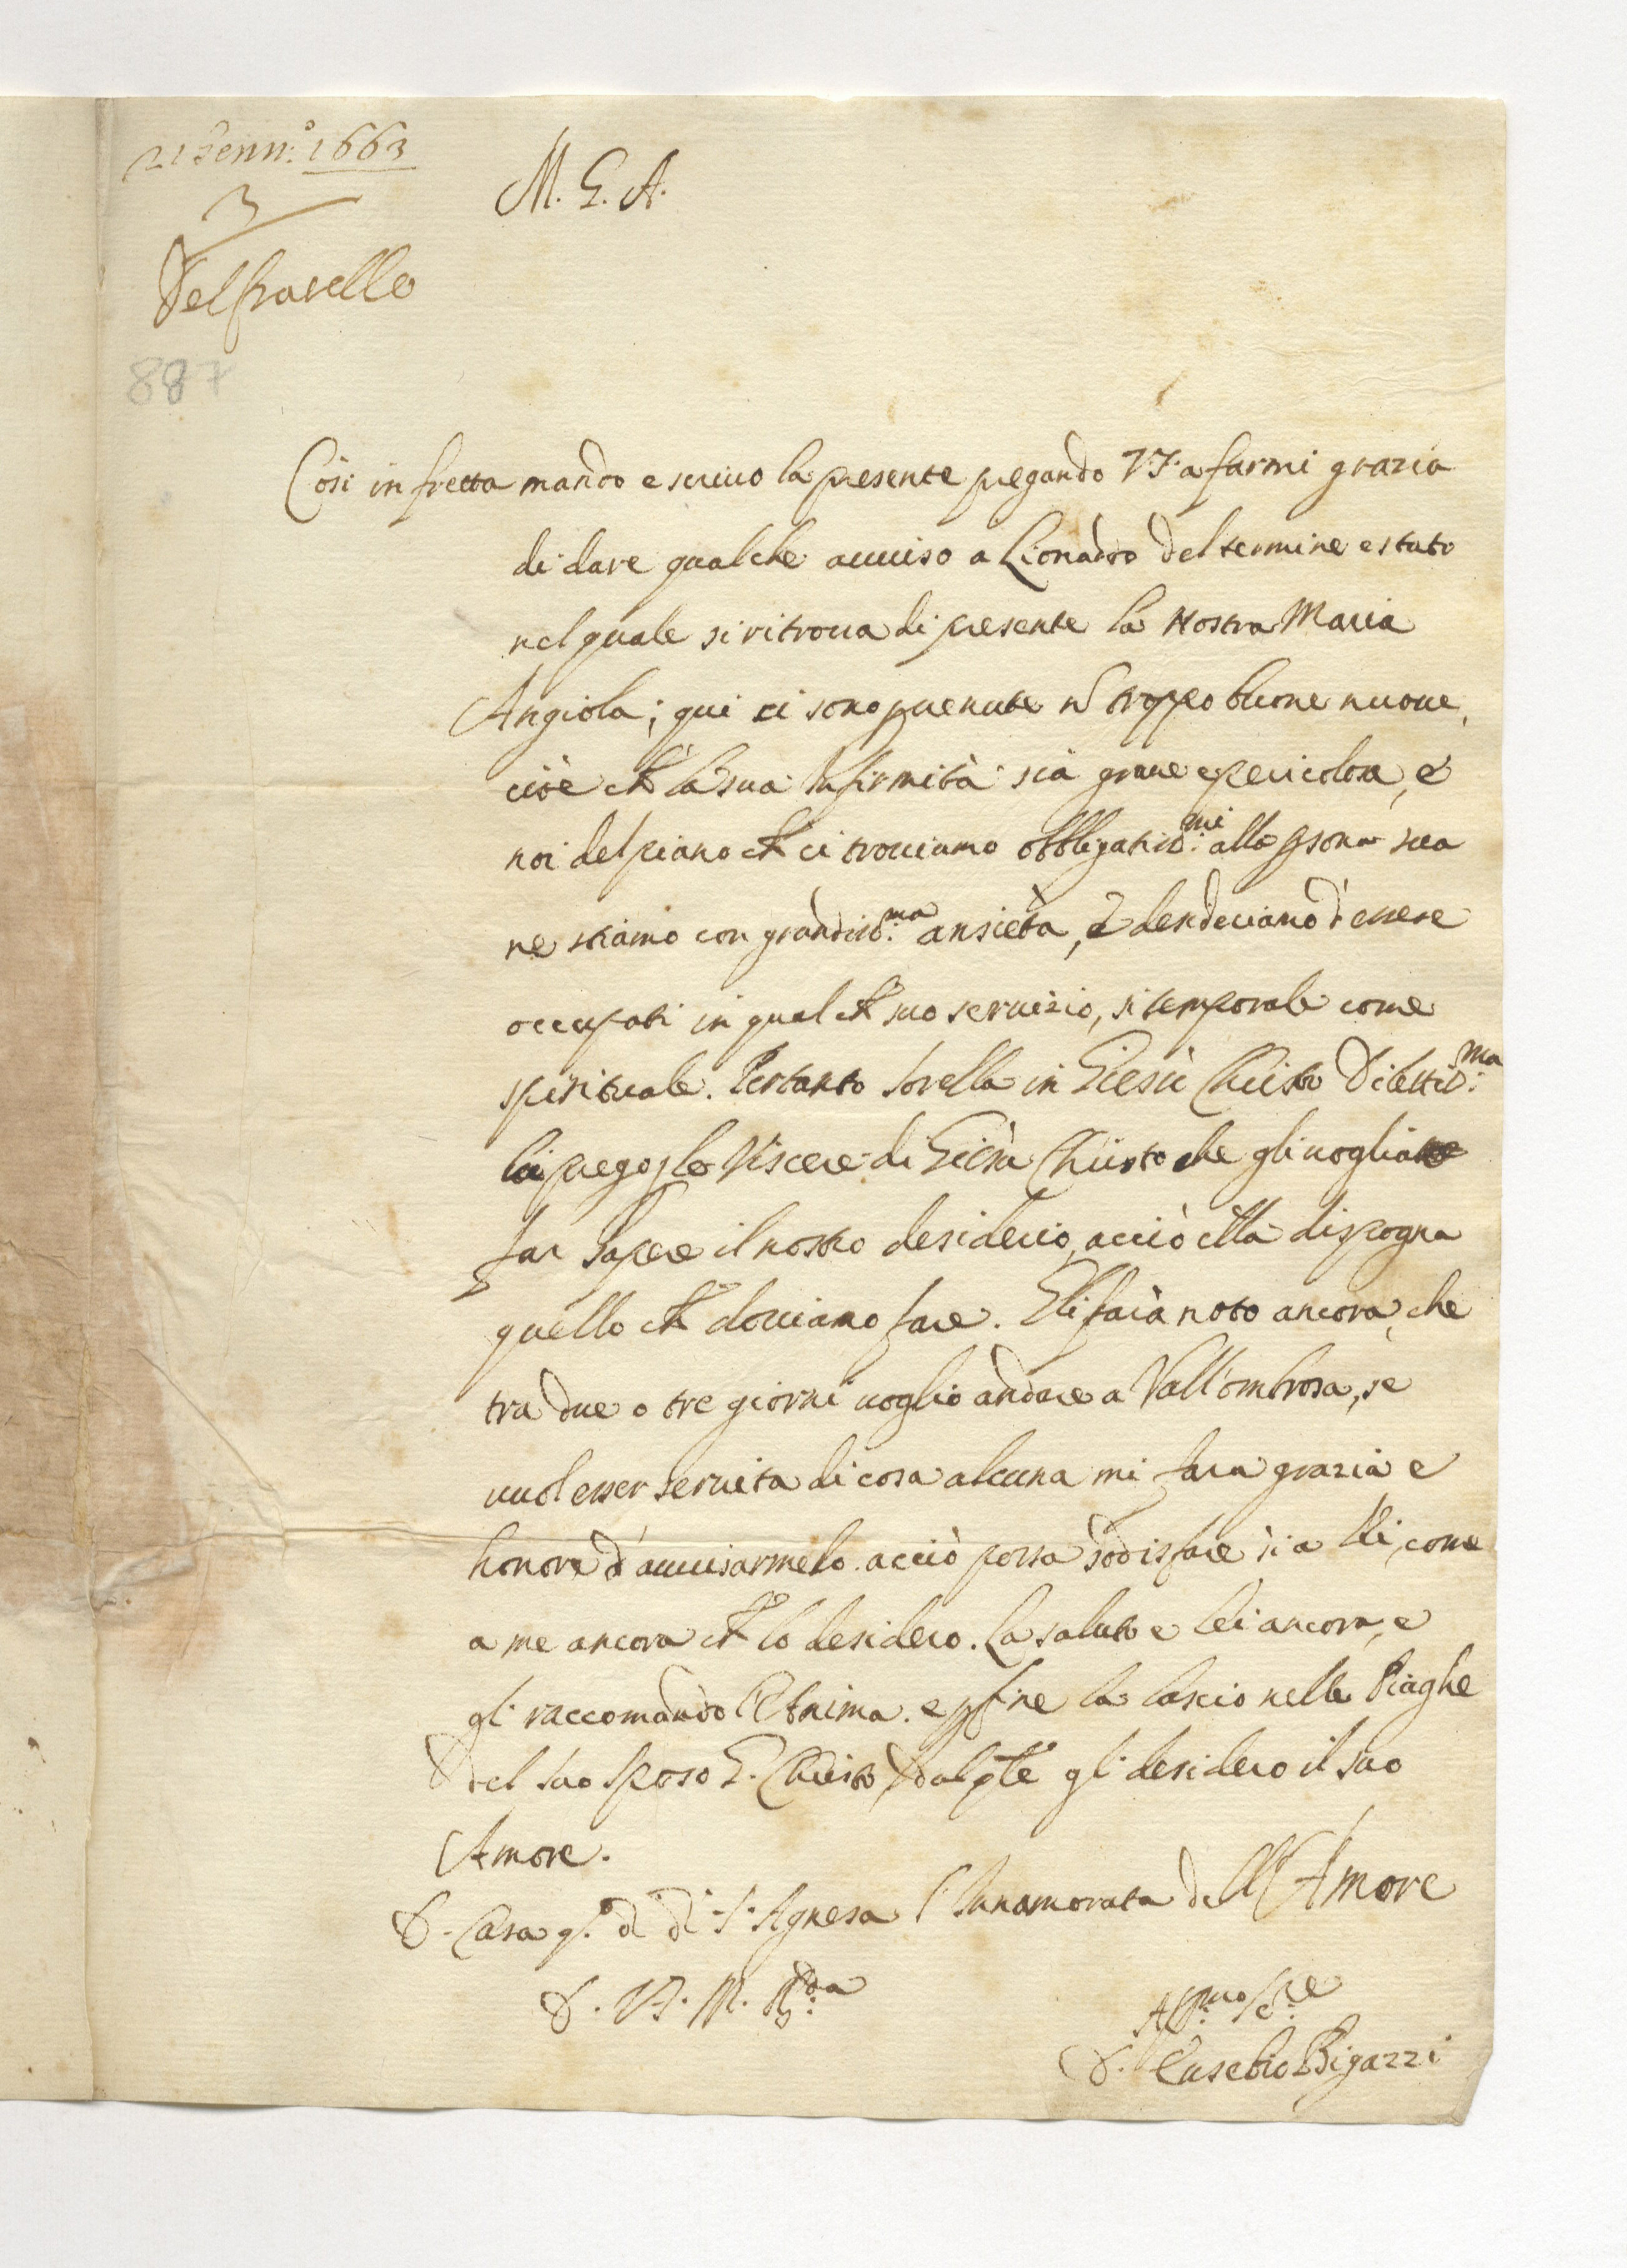 21 Genn.º 1663
3
Del fratello
887
M. G. A.
Così in fretta mando e scriuo la presente pregando VS. a farmi grazia
di dare qualche auuiso a Lionardo del termine e stato
nel quale si ritroua di presente la Nostra Maria
Angiola; qui ci sono puenute nõ troppo buone nuoue,
cioè ch̃ la sua Infirmità sia graue e pericolosa, e
noi del piano ch̃ ci trouiamo obbligatiss.mi alla psona sua
ne stiamo con grandiss.ma ansietà, e desideriamo d'essere
occupati in qual ch̃ suo seruizio, si temporale come
spirituale. Pertanto Sorella in Giesù Christo Dilettiss.ma
la prego p le Viscere di Giesù Christo che gli voglia
far sapere il nostro desiderio, acciò ella dispogna
quello ch̃ douiamo fare. Gli farà noto ancora, che
tra due o tre giorni uoglio andare a Vall'ombrosa, se
uuol esser seruita di cosa alcuna mi farà grazia e
honore d'auuisarmelo. acciò possa sodisfare sì a lei, come
a me ancora ch̃ lo desidero. La saluto e lei ancora, e
gli raccomando l'Anima. e p fine la lascio nelle Piaghe
del suo Sposo G. Christo, dal qle gli desidero il suo
Amore.
D. Casa q.º dì di S. Agnesa l'Innamorata dell'Amore
D. V.S. M. R.da
Aff.mo Se.re
D. Eusebio Bigazzi